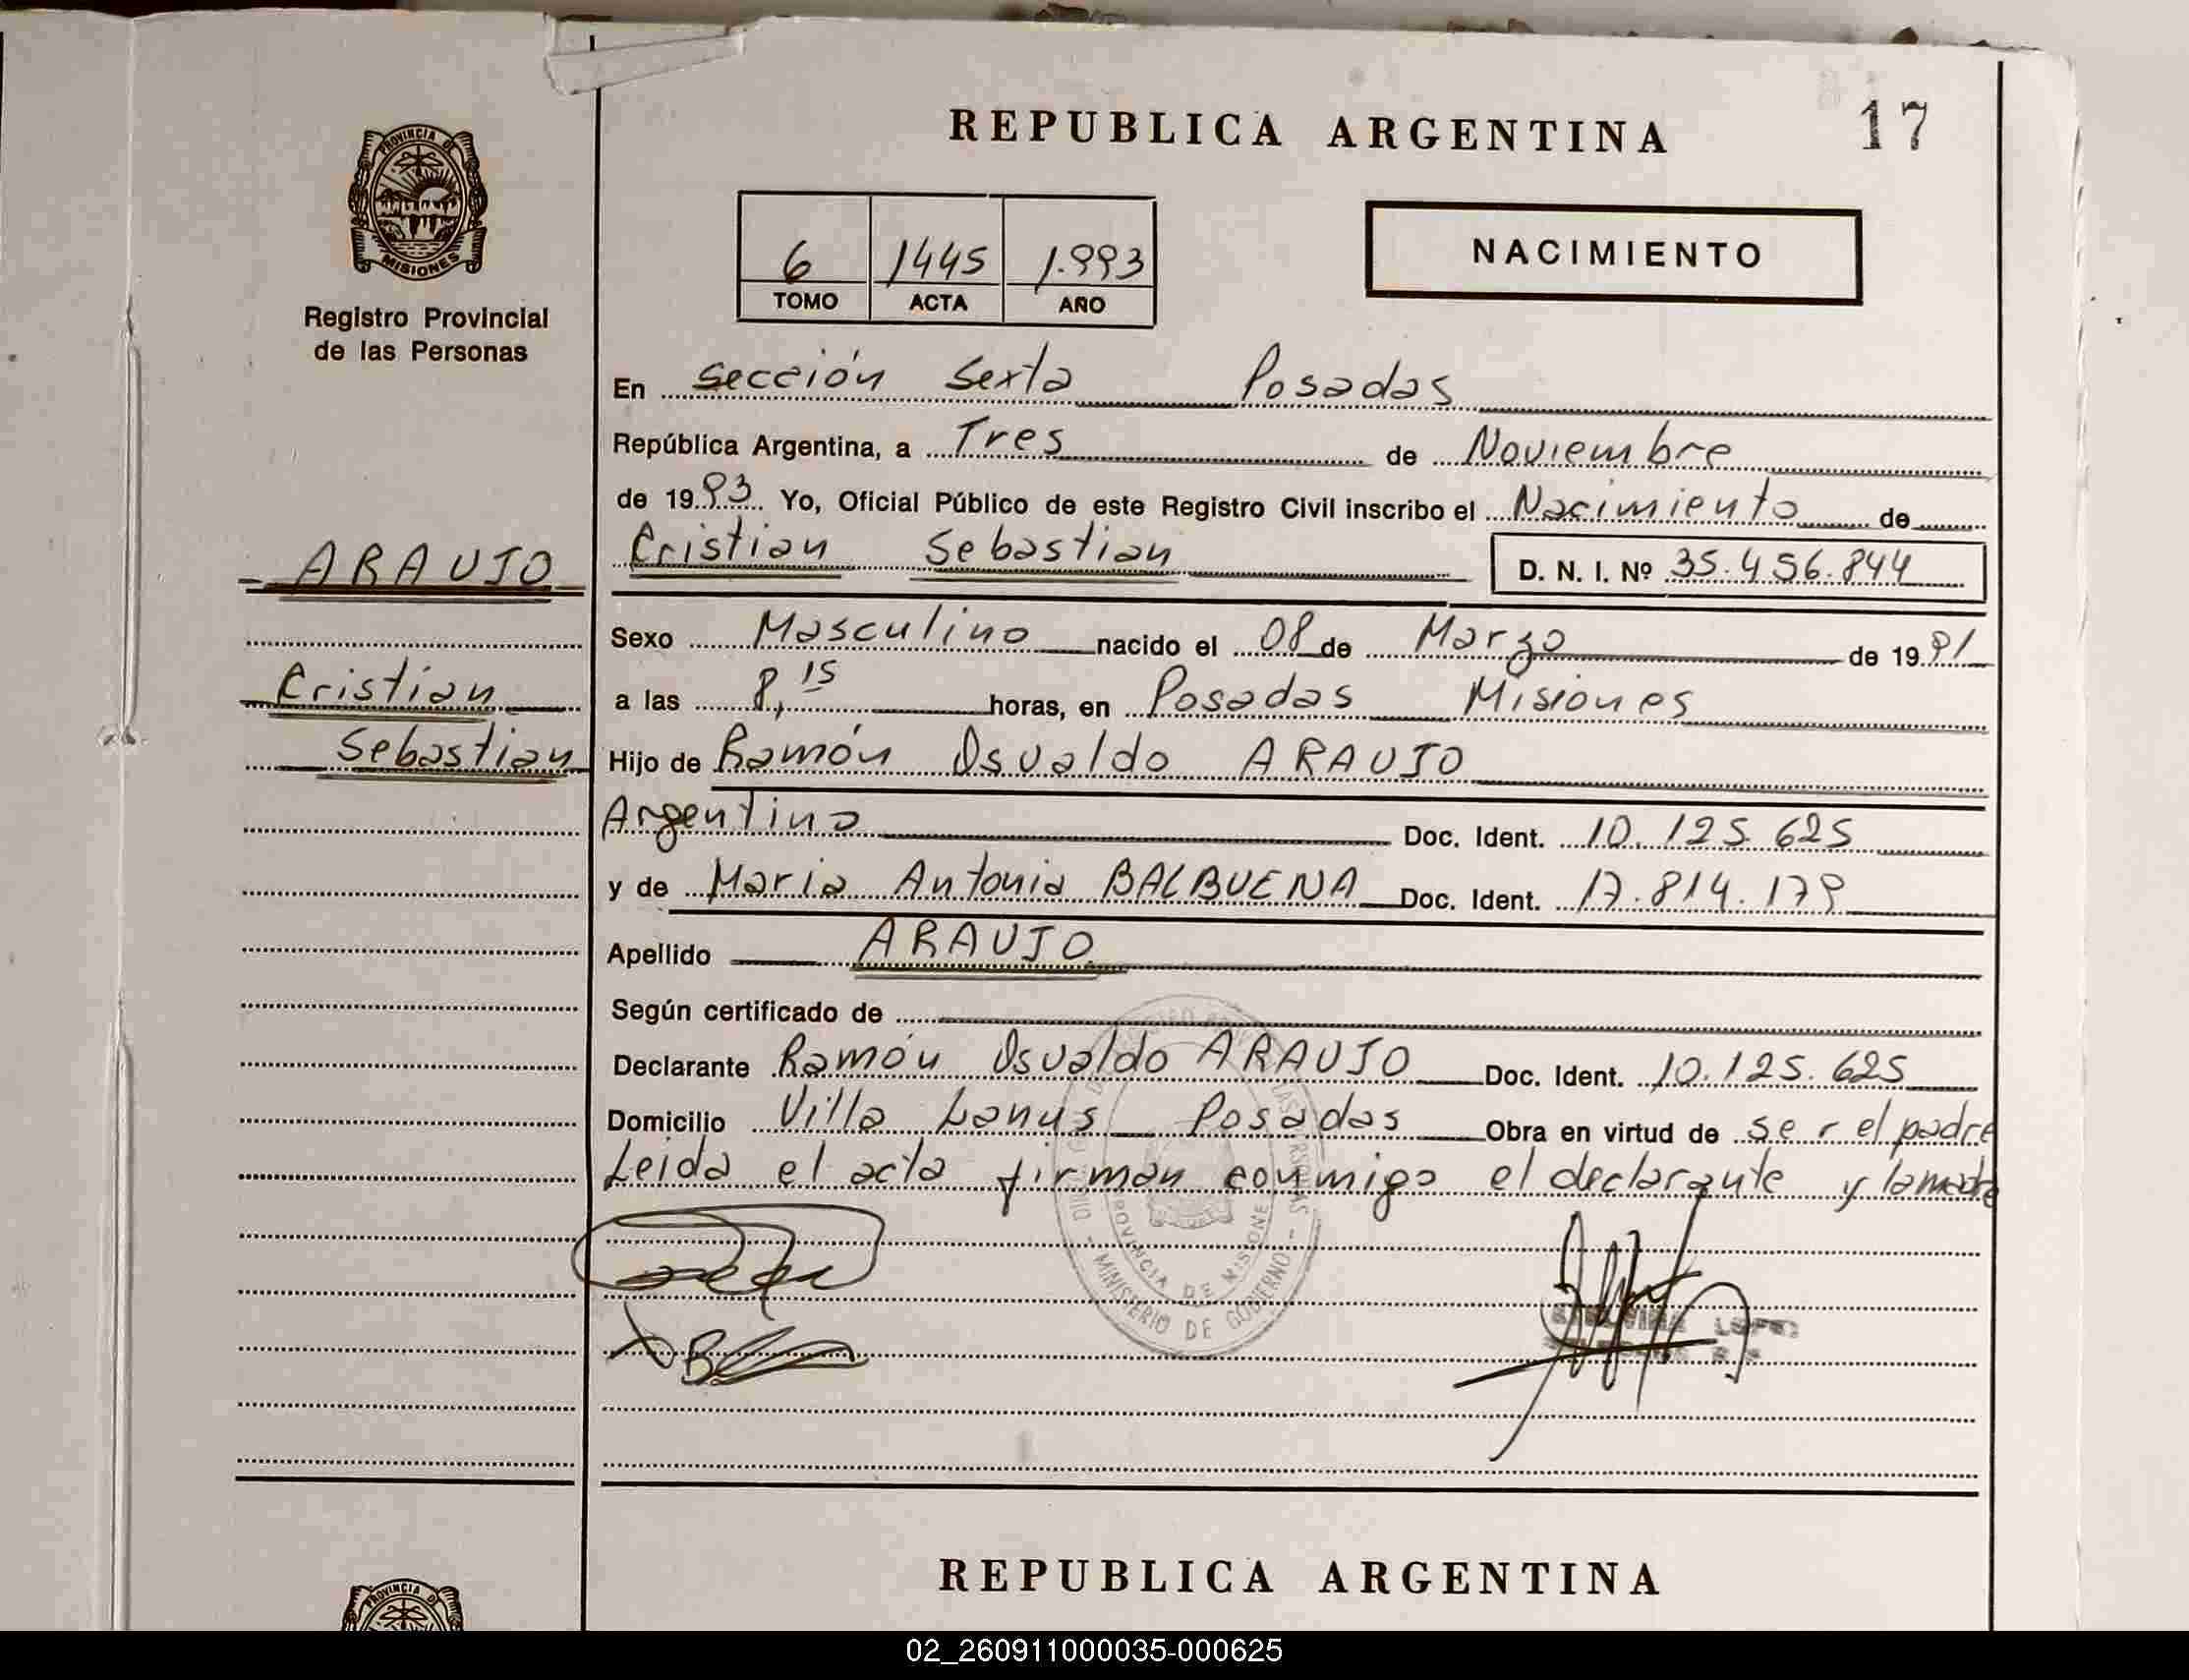 REPUBLICA ARGENTINA
17
PROVINCIA DE
MISIONES
Registro Provincial
de las Personas
6 1445 1.993
TOMO ACTA AÑO
NACIMIENTO
En Sección Sexta Posadas
República Argentina, a Tres de Noviembre
de 1993. Yo, Oficial Público de este Registro Civil inscribo el Nacimiento de
ARAUJO
Cristian Sebastian
D. N. I. Nº 35.456.844
Sexo Masculino nacido el 08 de Marzo de 1991
Cristian
a las 8,15 horas, en Posadas Misiones
Sebastian
Hijo de Ramón Osvaldo ARAUJO
Argentino Doc. Ident. 10.125.625
y de Maria Antonia BALBUENA Doc. Ident. 17.814.179
Apellido ARAUJO
Según certificado de
Declarante Ramón Osvaldo ARAUJO Doc. Ident. 10.125.625
Domicilio Villa Lanus Posadas Obra en virtud de ser el padre
Leida el acta firman conmigo el declarante y la madre
PROVINCIA DE MISIONES
MINISTERIO DE GOBIERNO
LOPEZ
REPUBLICA ARGENTINA
PROVINCIA DE
02_260911000035-000625